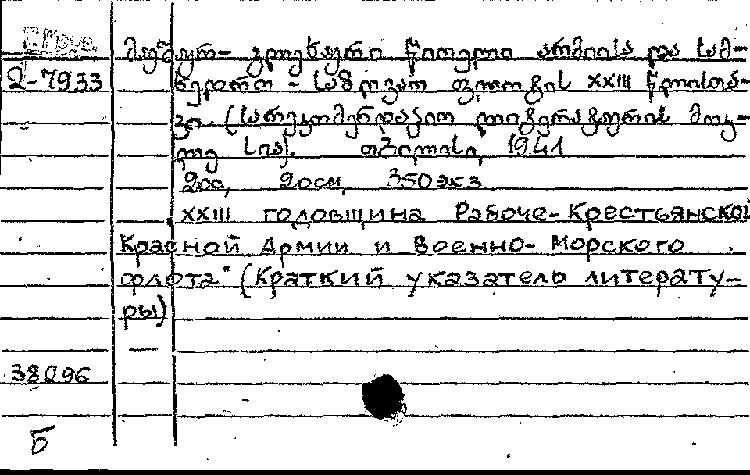 მუშურ-გლეხური წითელი არმიისა და სამ-
2-7933 ხედრო-საზღვაო ფლოტის XXIII წლისთა-
ვი. (სარეკომენდაციო ლიტერატურის მოკ-
ლე სია). თბილისი, 1941
20с, 20см, 350экз
XXIII годовщина Рабоче-Крестьянской
Красной Армии и Военно-Морского
флота" (Краткий указатель литерату-
ры)
—
38096
Б